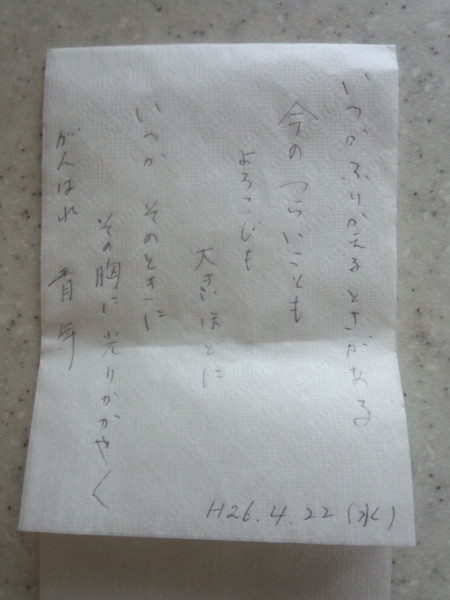 いつかふりかえるときがある
今のつらいことも
よろこびも
大きいほどに
いつか そのときに
その胸に光りかがやく
がんばれ 青年
H26.4.22(水)